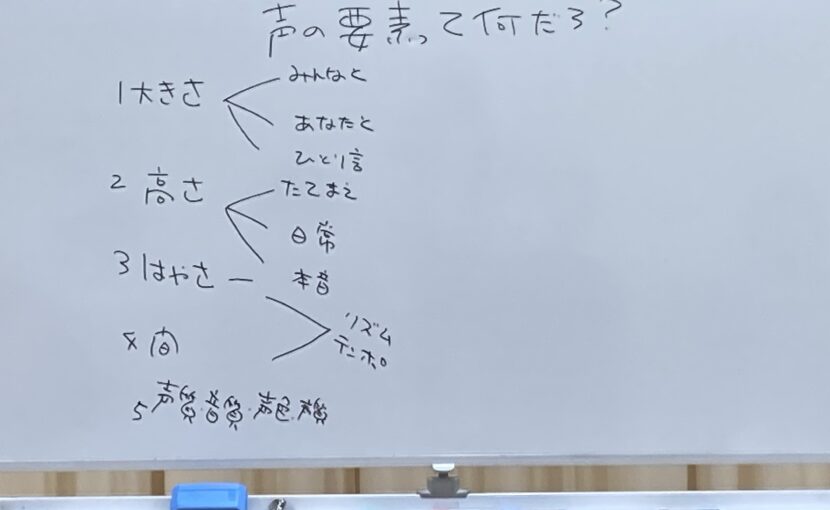 声の要素って何だろ?
1 大きさ
みんなと
あなたと
ひとり言
2 高さ
たてまえ
日常
本音
3 はやさ
4 間
リズム
テンポ
5 声質・音質・声色